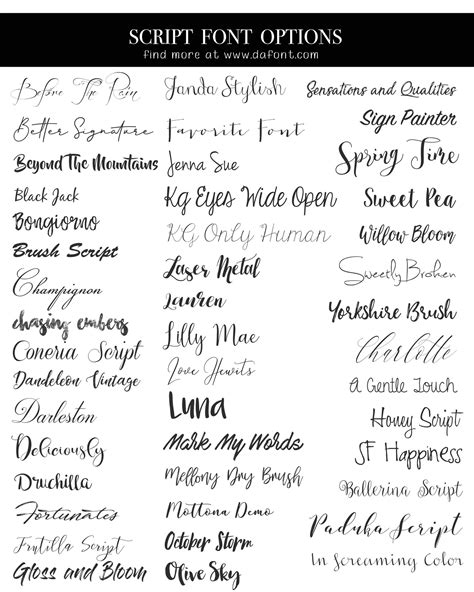 SCRIPT FONT OPTIONS
find more at www.dafont.com
Before The Rain
Better Signature
Beyond The Mountains
Black Jack
Bongiorno
Brush Script
Champignon
chasing embers
Coneria Script
Dandeleon Vintage
Darleston
Deliciously
Druchilla
Fortunates
Frutilla Script
Gloss and Bloom
Janda Stylish
Favorite Font
Jenna Sue
Kg Eyes Wide Open
KG Only Human
Laser Metal
Lauren
Lilly Mae
Love Hewits
Luna
Mark My Words
Mellony Dry Brush
Mottona Demo
October Storm
Olive Sky
Sensations and Qualities
Sign Painter
Spring Time
Sweet Pea
Willow Bloom
Sweetly Broken
Yorkshire Brush
Charlotte
A Gentle Touch
Honey Script
JF Happiness
Ballerina Script
Paduka Script
In Screaming Color